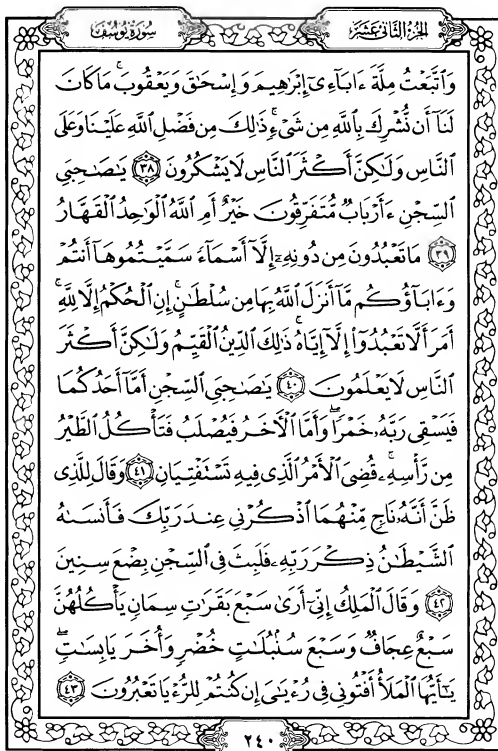 الجزء الثاني عشر
سورة يوسف
وَاتَّبَعْتُ مِلَّةَ ءَابَآءِىٓ إِبْرَٰهِيمَ وَإِسْحَٰقَ وَيَعْقُوبَ ۚ مَا كَانَ
لَنَآ أَن نُّشْرِكَ بِاللَّهِ مِن شَىْءٍ ۚ ذَٰلِكَ مِن فَضْلِ اللَّهِ عَلَيْنَا وَعَلَى
النَّاسِ وَلَٰكِنَّ أَكْثَرَ النَّاسِ لَا يَشْكُرُونَ ٣٨ يَٰصَٰحِبَىِ
السِّجْنِ ءَأَرْبَابٌ مُّتَفَرِّقُونَ خَيْرٌ أَمِ اللَّهُ الْوَٰحِدُ الْقَهَّارُ
٣٩ مَا تَعْبُدُونَ مِن دُونِهِۦٓ إِلَّآ أَسْمَآءً سَمَّيْتُمُوهَآ أَنتُمْ
وَءَابَآؤُكُم مَّآ أَنزَلَ اللَّهُ بِهَا مِن سُلْطَٰنٍ ۚ إِنِ الْحُكْمُ إِلَّا لِلَّهِ ۚ
أَمَرَ أَلَّا تَعْبُدُوٓا۟ إِلَّآ إِيَّاهُ ۚ ذَٰلِكَ الدِّينُ الْقَيِّمُ وَلَٰكِنَّ أَكْثَرَ
النَّاسِ لَا يَعْلَمُونَ ٤٠ يَٰصَٰحِبَىِ السِّجْنِ أَمَّآ أَحَدُكُمَا
فَيَسْقِى رَبَّهُۥ خَمْرًا ۖ وَأَمَّا الْءَاخَرُ فَيُصْلَبُ فَتَأْكُلُ الطَّيْرُ
مِن رَّأْسِهِۦ ۚ قُضِىَ الْأَمْرُ الَّذِى فِيهِ تَسْتَفْتِيَانِ ٤١ وَقَالَ لِلَّذِى
ظَنَّ أَنَّهُۥ نَاجٍ مِّنْهُمَا اذْكُرْنِى عِندَ رَبِّكَ فَأَنسَىٰهُ
الشَّيْطَٰنُ ذِكْرَ رَبِّهِۦ فَلَبِثَ فِى السِّجْنِ بِضْعَ سِنِينَ
٤٢ وَقَالَ الْمَلِكُ إِنِّىٓ أَرَىٰ سَبْعَ بَقَرَٰتٍ سِمَانٍ يَأْكُلُهُنَّ
سَبْعٌ عِجَافٌ وَسَبْعَ سُنۢبُلَٰتٍ خُضْرٍ وَأُخَرَ يَابِسَٰتٍ ۖ
يَٰٓأَيُّهَا الْمَلَأُ أَفْتُونِى فِى رُءْيَٰىَ إِن كُنتُمْ لِلرُّءْيَا تَعْبُرُونَ ٤٣
٢٤٠